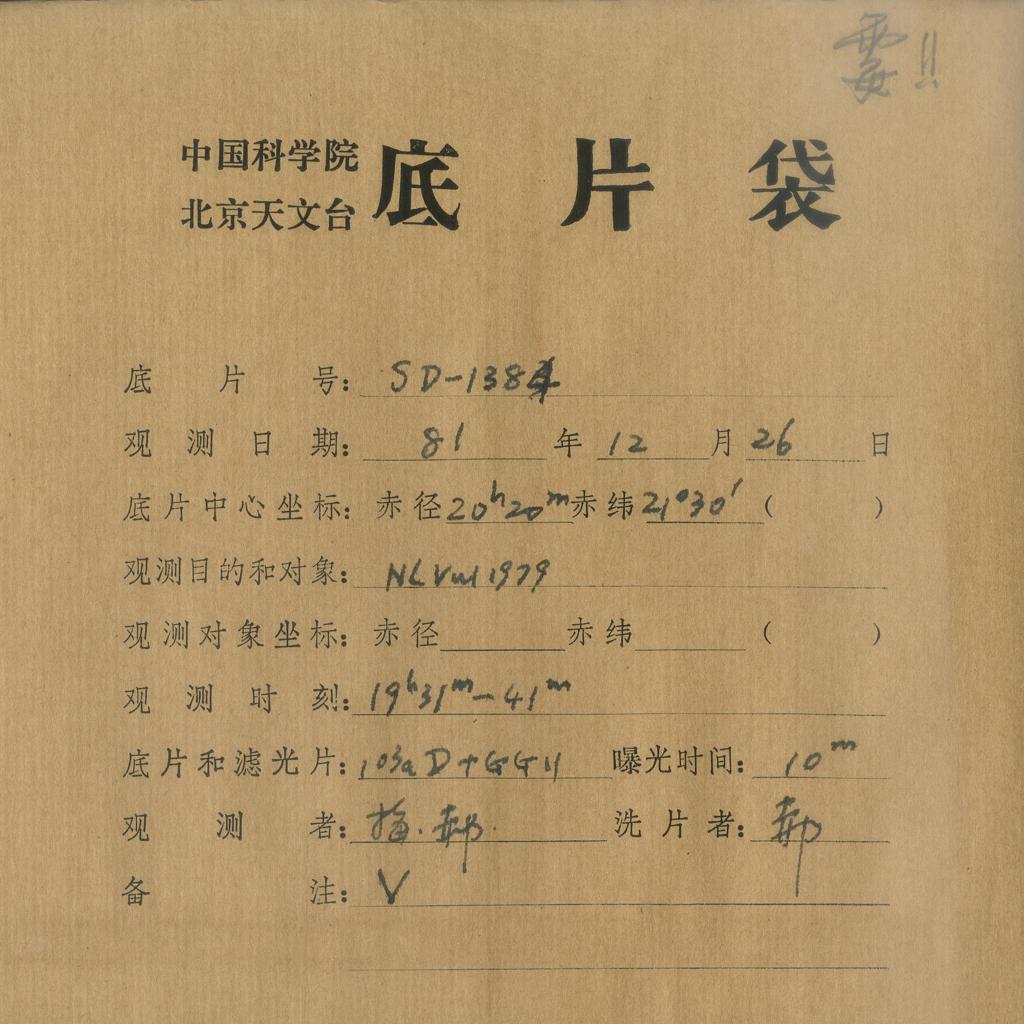 霉!!
中国科学院
北京天文台
底片袋
底片号：SD-1384
观测日期：81年12月26日
底片中心坐标：赤径20ʰ20ᵐ赤纬21°30′（ ）
观测目的和对象：NL Vul 1979
观测对象坐标：赤径 赤纬 （ ）
观测时刻：19ʰ31ᵐ-41ᵐ
底片和滤光片：103aD+GG11 曝光时间：10ᵐ
观测者：梅.郝. 洗片者：郝
备注：V